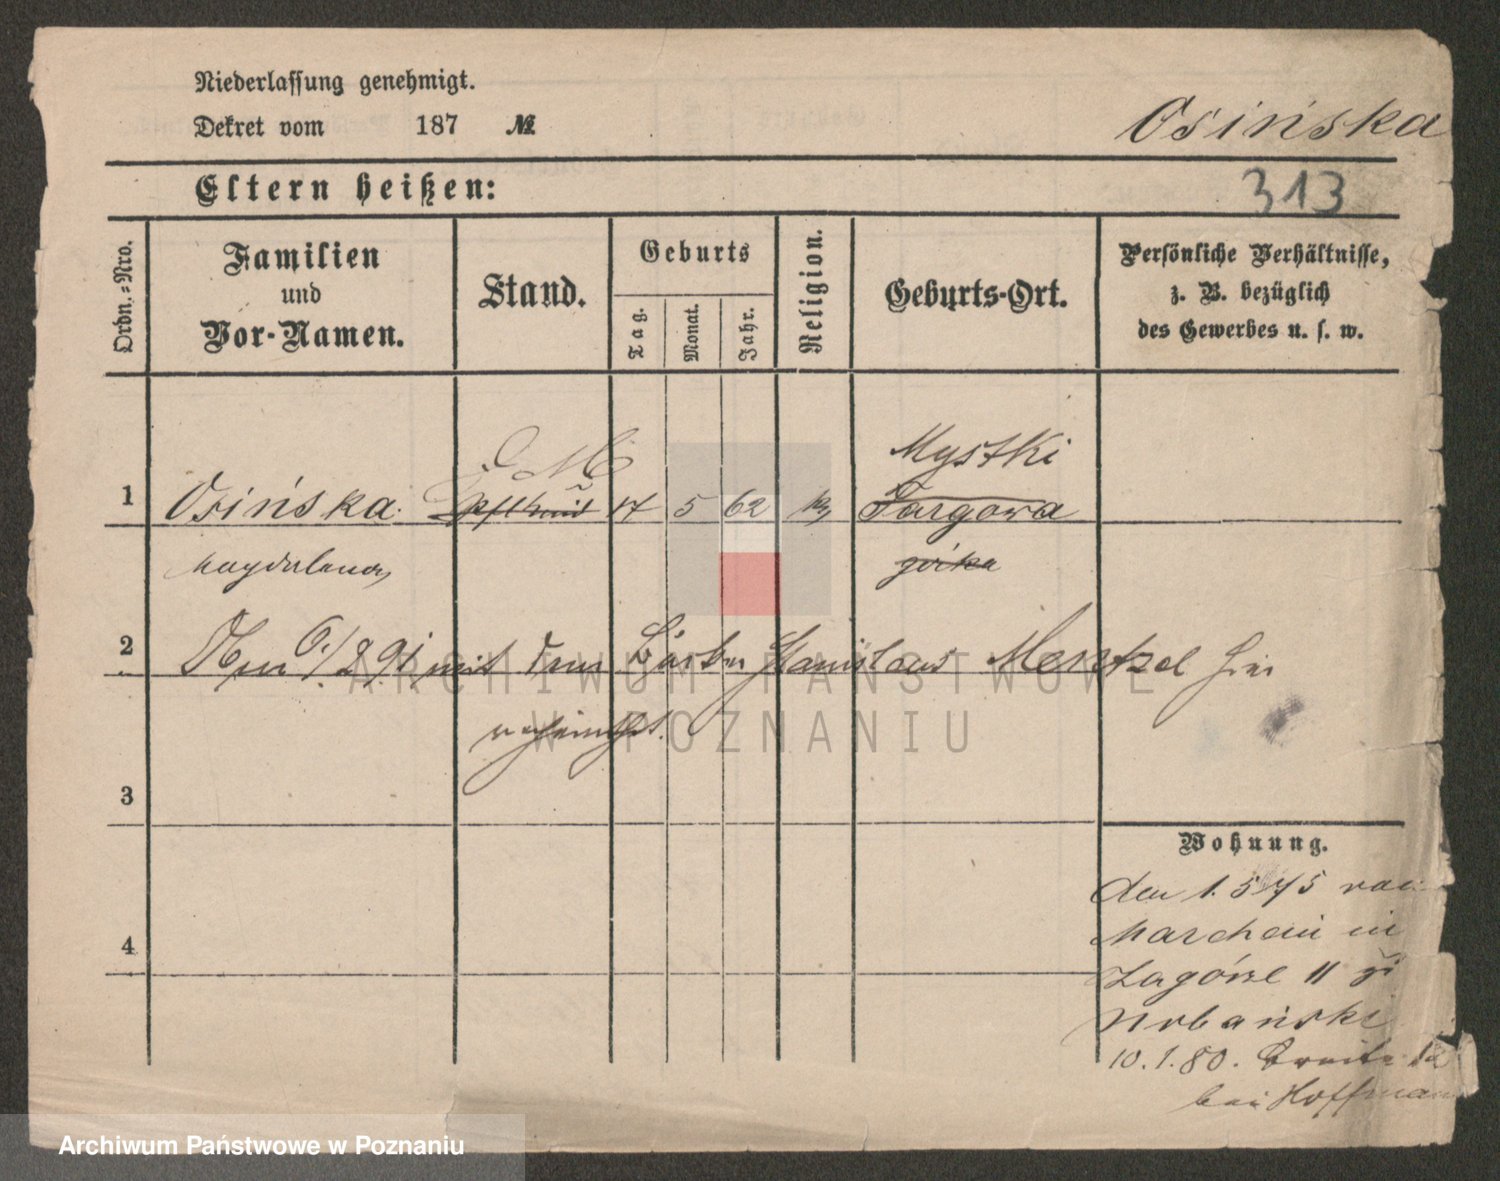 Niederlassung genehmigt.
Dekret vom 187 №
Osińska
Eltern heißen:
313
Ordn.-Nro.
Familien
und
Vor-Namen.
Stand.
Geburts
Tag.
Monat.
Jahr.
Religion.
Geburts-Ort.
Persönliche Verhältnisse,
z. B. bezüglich
des Gewerbes u. s. w.
D M
Mystki
1 Osińska 17 5 62 k Targowa
Magdalena górka
2 Am 6./2 91 mit dem Stanislaus Mentzel hier
3
Wohnung.
den 1. 5 75 von
in
Zagórze 11 bei
Urbański
4
10. 1. 80. Breite 12
bei Hoffmann
ARCHIWUM PAŃSTWOWE
W POZNANIU
Archiwum Państwowe w Poznaniu